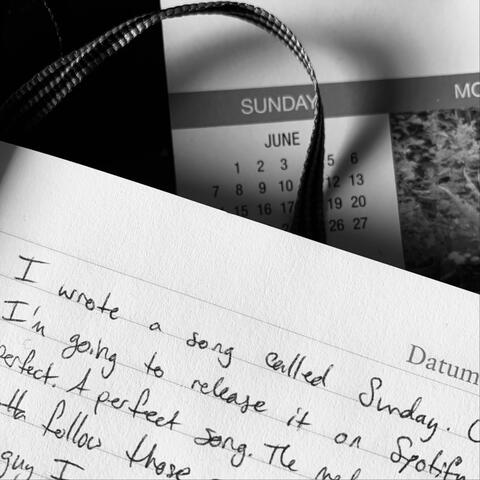 SUNDAY MO
JUNE
1 2 3 5 6
7 8 9 10 12 13
15 16 17 19 20
26 27
Datum
I wrote a song called Sunday.
I'm going to release it on Spotify
perfect. A perfect song. The
follow those
guy I